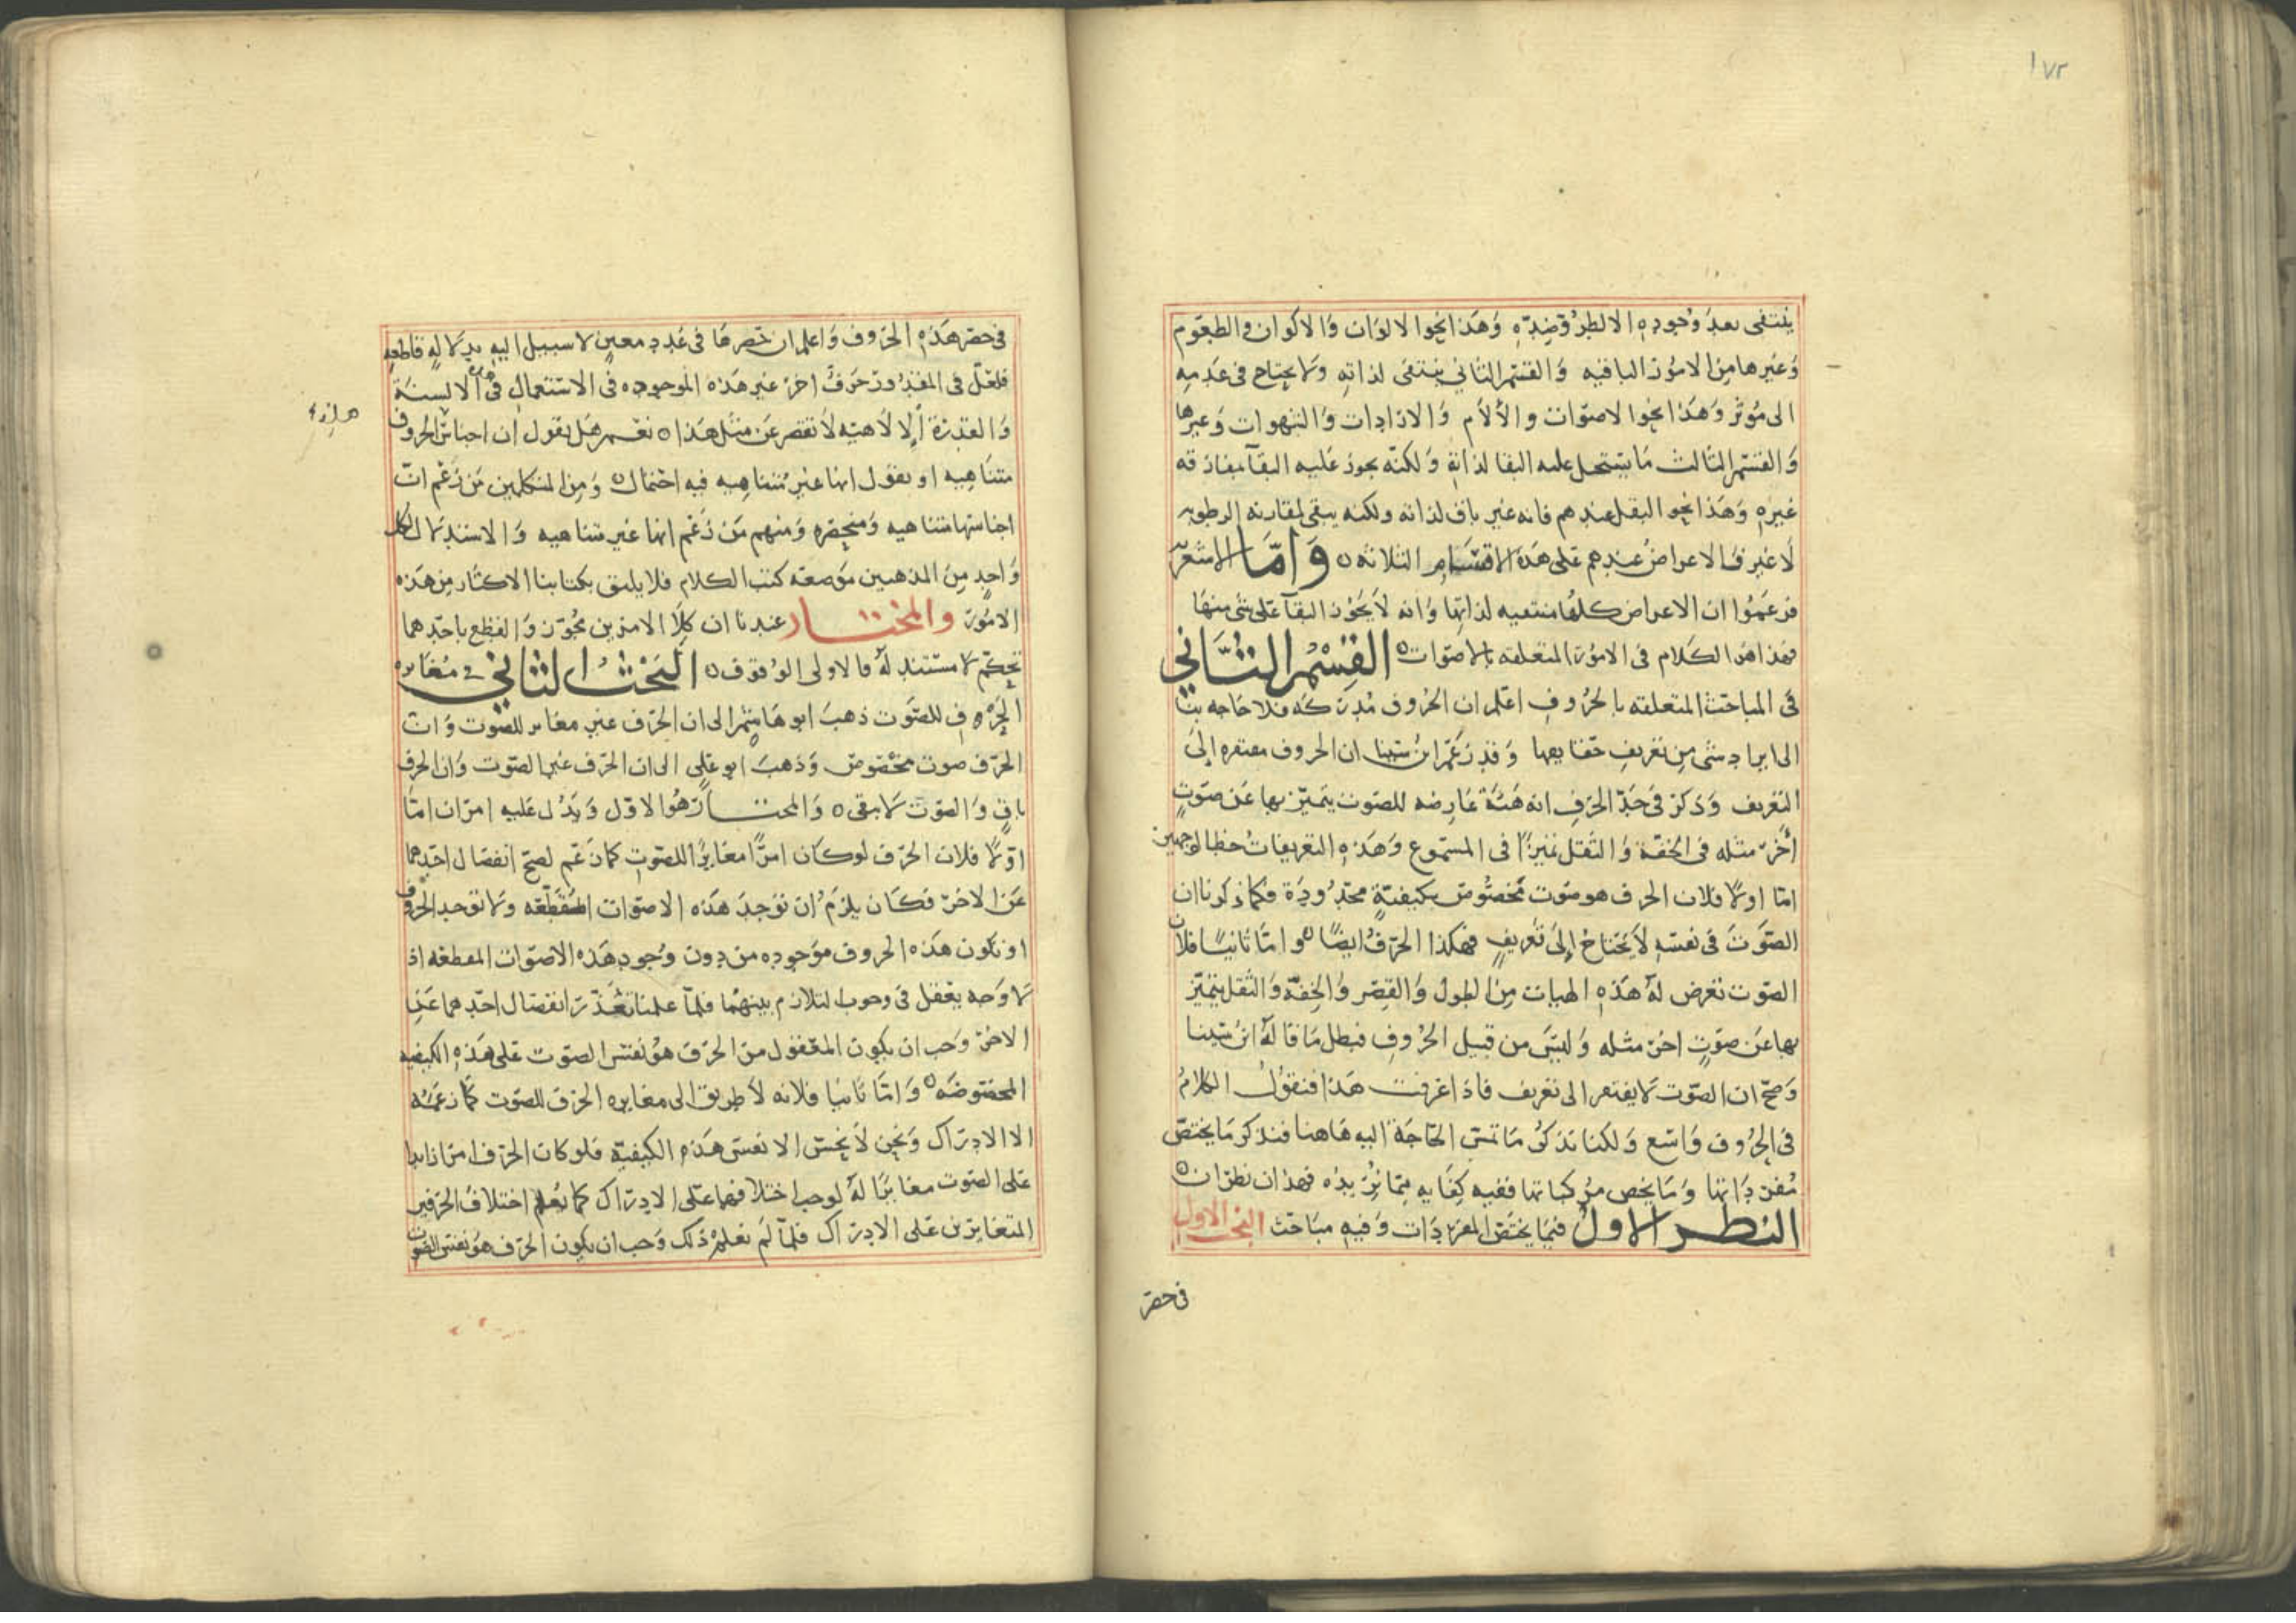 ١٧٢
ينتفى بعد وجوده الا لطرو ضده وهذا نحوا لالوان والاكوان والطعوم
وغيرها من الامور الباقيه والقسم الثاني ينتفى لذاته ولا يحتاج فى عدمه
الى موثر وهذا نحوا لاصوات والالام والارادات والشهوات وغيرها
والقسم الثالث ما يستحيل عليه البقا لذاته ولكنه يجوز عليه البقا بمقارنه
غيره وهذا نحو الثقل عندهم فانه غير باق لذاته ولكنه يبقى لمقارنه الرطوبه
لا غير فالاعراض عندهم على هذه الاقسام الثلاثه ٥ واما الاشعريه
فزعموا ان الاعراض كلها منتفيه لذاتها وانه لا يجوز البقا على شى منها
فهذا هو الكلام فى الامور المتعلقه بالاصوات ٥ القسم الثانى
فى المباحث المتعلقه بالحروف اعلم ان الحروف مدركه فلا حاجه بنا
الى ايراد شى من تعريف حقايقها وقد زعم ابن سينا ان الحروف مفتقره الى
التعريف وذكر فى حد الحرف انه هيئة عارضه للصوت يتميز بها عن صوت
اخر مثله فى الخفة والثقل تميزا فى المسموع وهذه التعريفات خطا لوجهين
اما اولا فلان الحرف هو صوت مخصوص بكيفية محدودة فكما ذكرنا ان
الصوت فى نفسه لا يحتاج الى تعريف فهكذا الحرف ايضا ٥ واما ثانيا فلان
الصوت تعرض له هذه الهيات من الطول والقصر والخفه والثقل يتميز
بها عن صوت اخر مثله وليس من قبيل الحروف فبطل ما قاله ابن سينا
وصح ان الصوت لا يفتقر الى تعريف فاذا عرفت هذا فنقول الكلام
فى الحروف واسع ولكنا نذكر ما تمس الحاجة اليه هاهنا فنذكر ما يختص
مفرداتها وما يخص مركباتها ففيه كفايه بما نريده فهذان نظران ٥
النظر الاول فيما يختص المفردات وفيه مباحث البحث الاول
فى حصر
فى حصر هذه الحروف واعلم ان حصرها فى عدد معين لا سبيل اليه بدلاله قاطعه
فلعل فى المقدور حرف اخر غير هذه الموجوده فى الاستعمال فى الالسنة
والقدرة الالاهيه لا تقصر عن مثل هذا ٥ نعم هل يقول ان اجناس الحروف
متناهيه او يقول انها غير متناهيه فيه احتمال ٥ ومن المتكلمين من زعم ان
اجناسها متناهيه ومنحصره ومنهم من زعم انها غير متناهيه والاستدلال لكل
واحد من المذهبين موضعه كتب الكلام فلا يليق بكتابنا الاكثار من هذه
الامور والمختار عندنا ان كلا الامرين مجوز والقطع باحدهما
تحكم لا مستند له فالاولى الوقوف ٥ البحث الثاني فى مغايره
الحروف للصوت ذهب ابو هاشم الى ان الحرف غير مغاير للصوت وان
الحرف صوت مخصوص وذهب ابو على الى ان الحرف غير الصوت وان الحرف
باق والصوت لا يبقى ٥ والمختار هو الاول ويدل عليه امران اما
اولا فلان الحرف لو كان امرا مغايرا للصوت كما زعم لصح انفصال احدهما
عن الاخر فكان يلزم ان توجد هذه الاصوات المتقطعه ولا توجد الحروف
او تكون هذه الحروف موجوده من دون وجود هذه الاصوات المقطعه اذ
لا وجه يعقل فى وجوب التلازم بينهما فلما علمنا تعذر انفصال احدهما عن
الاخر وجب ان يكون المعقول من الحرف هو نفس الصوت على هذه الكيفيه
المخصوصه ٥ واما ثانيا فلانه لا طريق الى مغايره الحرف للصوت كما زعمته
الا الادراك ونحن لا نحس الا نفس هذه الكيفية فلو كان الحرف امرا زايدا
على الصوت مغايرا له لوجب اختلافهما على الادراك كما نعلم اختلاف الحرفين
المتغايرين على الادراك فلما لم نعلم ذلك وجب ان يكون الحرف هو نفس الصوت